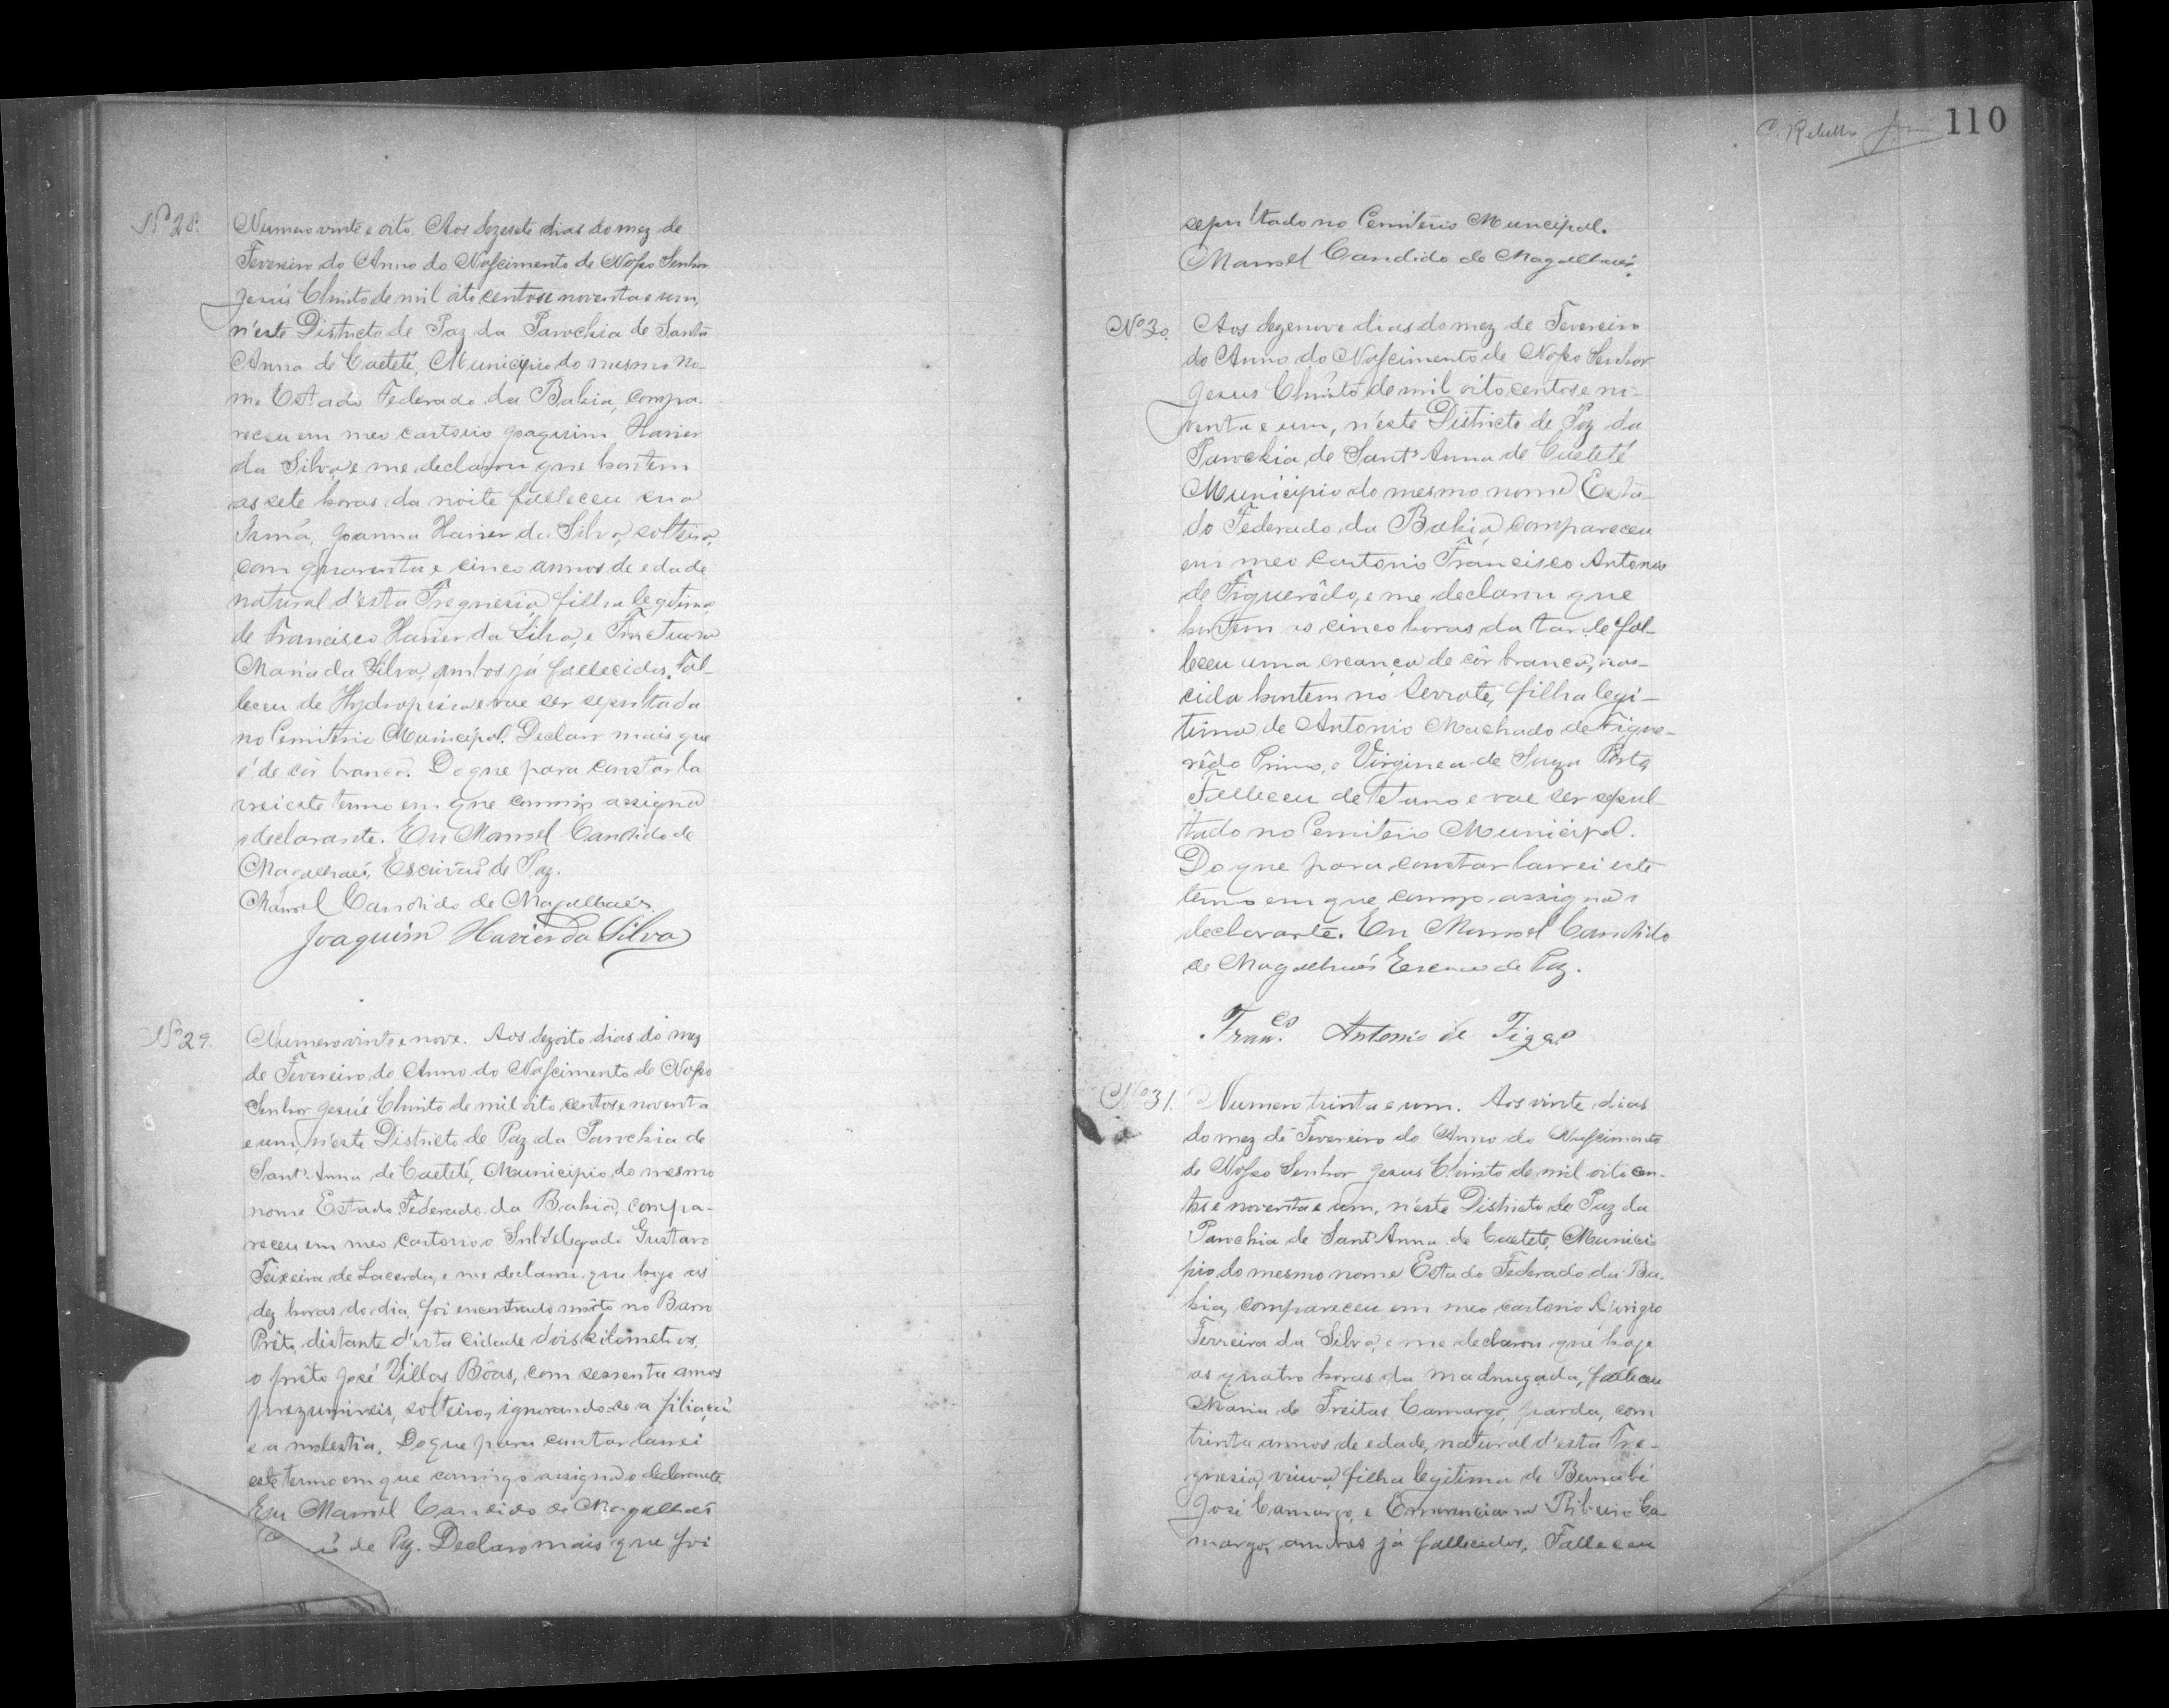 Nº 28.
Numero vinte e oito. Aos dezesete dias do mez de
Fevereiro do Anno do Nascimento de Nosso Senhor
Jesús Christo de mil oito centos e noventa e um,
n'este Districto de Paz da Parochia de Santa
Anna de Caeteté, Municipio do mesmo no-
me Estado Federado da Bahia, compa-
receu em meo cartorio Joaquim Xavier
da Silva, e me declarou que hontem
as sete horas da noite falleceu sua
Irmã, Joanna Xavier da Silva, solteira,
com quarenta e cinco annos de edade
natural d'esta Freguesia, filha legitima
de Francisco Xavier da Silva, e
Maria da Silva, ambos já fallecidos. Fal-
leceu de Hydropisia e vae ser sepultada
no Cemiterio Municipal. Declaro mais que
é de côr branca. Do que para constar la
vrei este termo em que commigo assigna
o declarante. Eu Manoel Candido de
Magalhaés, Escrivão de Paz.
Manoel Candido de Magalhaés.
Joaquim Xavier da Silva
Nº 29.
Numero vinte e nove. Aos dezoito dias do mez
de Fevereiro do Anno do Nascimento de Nosso
Senhor Jesús Christo de mil oito centos e noventa
e um, n'este Districto de Paz da Parochia de
Sant'Anna de Caeteté, Municipio do mesmo
nome Estado Federado da Bahia, compa-
receu em meo cartorio o Subdelegado Gustavo
Teixeira de Lacerda, e me declarou que hoje as
dez horas do dia, foi encontrado môrto no Barro
Prêto, distante d'esta cidade dois kilometros,
o prêto José Villas Bôas, com sessenta annos
prezumiveis, solteiro, ignorando-se a filiação
e a molestia. Do que para constar lavrei
este termo em que comigo assigna o declarante.
Eu Manoel Candido de Magalhaés
de Paz. Declaro mais que foi
C. Rebello
110
sepultado no Cemiterio Muncipal.
Manoel Candido de Magalhaés.
Nº 30.
Aos dezenove dias do mez de Fevereiro
do Anno do Nascimento de Nosso Senhor
Jesus Christo de mil oito centos e no-
venta e um, n'este Districto de Paz da
Parochia de Sant'Anna de Caeteté
Municipio do mesmo nome Esta-
do Federado da Bahia, compareceu
em meo Cartorio Francisco Antonio
de Figuerêdo, e me declarou que
hontem as cinco horas da tarde fal-
leceu uma creança de côr branca, nas-
cida hontem no Serrote, filha legi-
tima de Antonio Machado de Figue-
rêdo Primo, e Virginea de Souza Porto,
Falleceu de Tetano e vae ser sepul-
tado no Cemiterio Municipal.
Do que para constar lavrei este
termo em que comigo assigna o
declarante. Eu Manoel Candido
de Magalhaés Escrivão de Paz.
Franco. Antonio de Figdo
Nº 31.
Numero trinta e um. Aos vinte dias
do mez de Fevereiro do Anno do Nascimento
de Nosso Senhor Jesus Christo de mil oito cen-
tos e noventa e um, n'este Districto de Paz da
Parochia de Sant'Anna de Caeteté, Munici
pio do mesmo nome Estado Federado da Ba-
hia, compareceu em meo cartorio
Ferreira da Silva, e me declarou que hoje
as quatro horas da madrugada, falleceu
Maria de Freitas Camargo, parda, com
trinta annos de edade, natural d'esta Fre-
guesia, viuva, filha legitima de Bernabé
José Camargo, e Emerenciana Ribeiro Ca-
margo, ambos já fallecidos. Falleceu